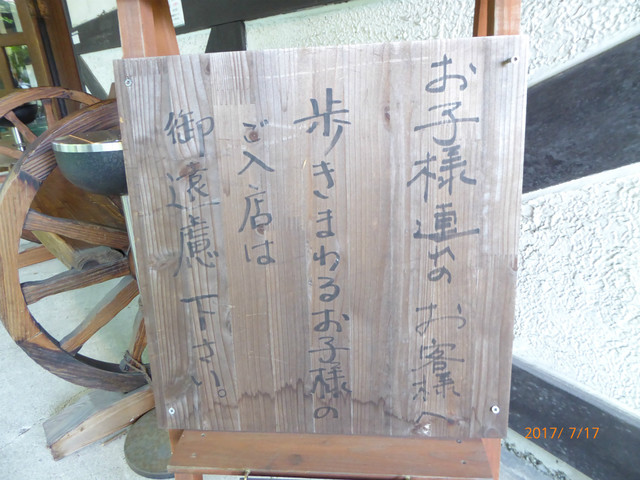 お子様連れのお客様へ
歩きまわるお子様の
ご入店は
御遠慮下さい。
2017/ 7/17